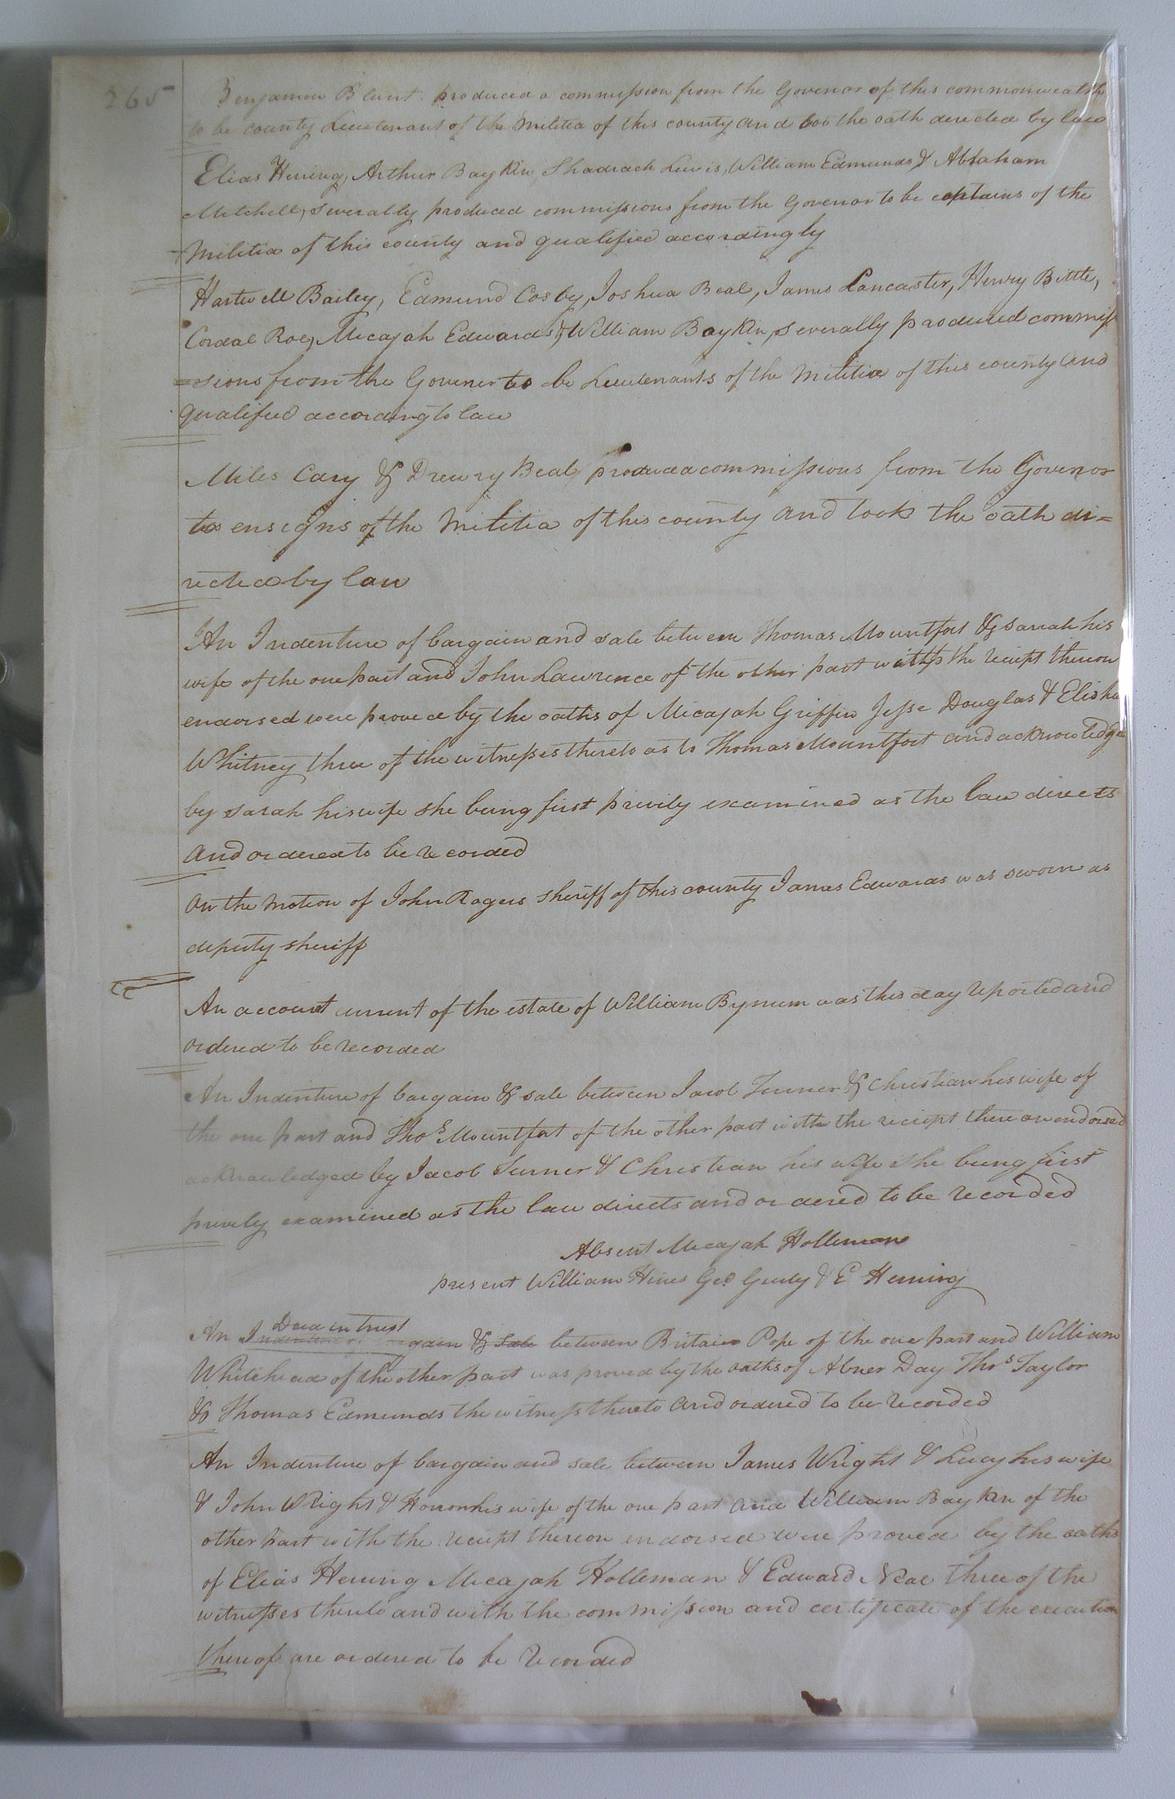 265
Benjamin Blunt produced a commission from the Govenor of this commonwealth
to be county Lieutenant of the Militia of this county and too the oath directed by law
Elias Herring, Arthur Baykin, Shadrach Lewis, William Edmunds & Abraham
Mitchell, severally produced commissions from the Govenor to be captains of the
Militia of this county and qualified accordingly
Hartwell Bailey, Edmund Cosby, Joshua Beal, James Lancaster, Henry Bittle,
Cordal Roe, Micajah Edwards & William Baykin, severally produced commis
=sions from the Govener to be Lieutenants of the Militia of this county and
qualified according to law
Miles Cary & Drewry Beal produced commissions from the Govenor
to ensigns of the Militia of this county and took the oath di=
rected by law
An Indenture of bargain and sale between Thomas Mountfort & Sarah his
wife of the one part and John Lawrence of the other part with the reciept thereon
endorsed were proved by the oaths of Micajah Griffin Jesse Douglas & Elisha
Whitney three of the witnesses thereto as to Thomas Mountfort and acknowledge
by Sarah his wife she being first privily examined as the law directs
and ordered to be recorded
On the motion of John Rogers sheriff of this county James Edwards was sworn as
deputy sheriff
An account current of the estate of William Bynum was this day reported and
ordered to be recorded
An Indenture of bargain & sale between Jacob Turner & Christian his wife of
the one part and Thos Mountfort of the other part with the reciept thereon endorsed
acknowledged by Jacob Turner & Christian his wife she being first
privily examined as the law directs and ordered to be recorded
Absent Micajah Holleman
present William Hines Geo Gurly & E Herring
Deed in trust
An Indenture of gain & sale between Britain Pope of the one part and William
Whitehead of the other part was proved by the oaths of Abner Day Thos Taylor
& Thomas Edmunds the witness thereto and ordered to be recorded
An Indenture of bargain and sale between James Wright & Lucy his wife
& John Wright & Honor his wife of the one part and William Baykin of the
other part with the reciept thereon endorsed were proved by the oaths
of Elias Herring Micajah Holleman & Edward Neal three of the
witnesses thereto and with the commission and certificate of the execution
thereof are ordered to be recorded